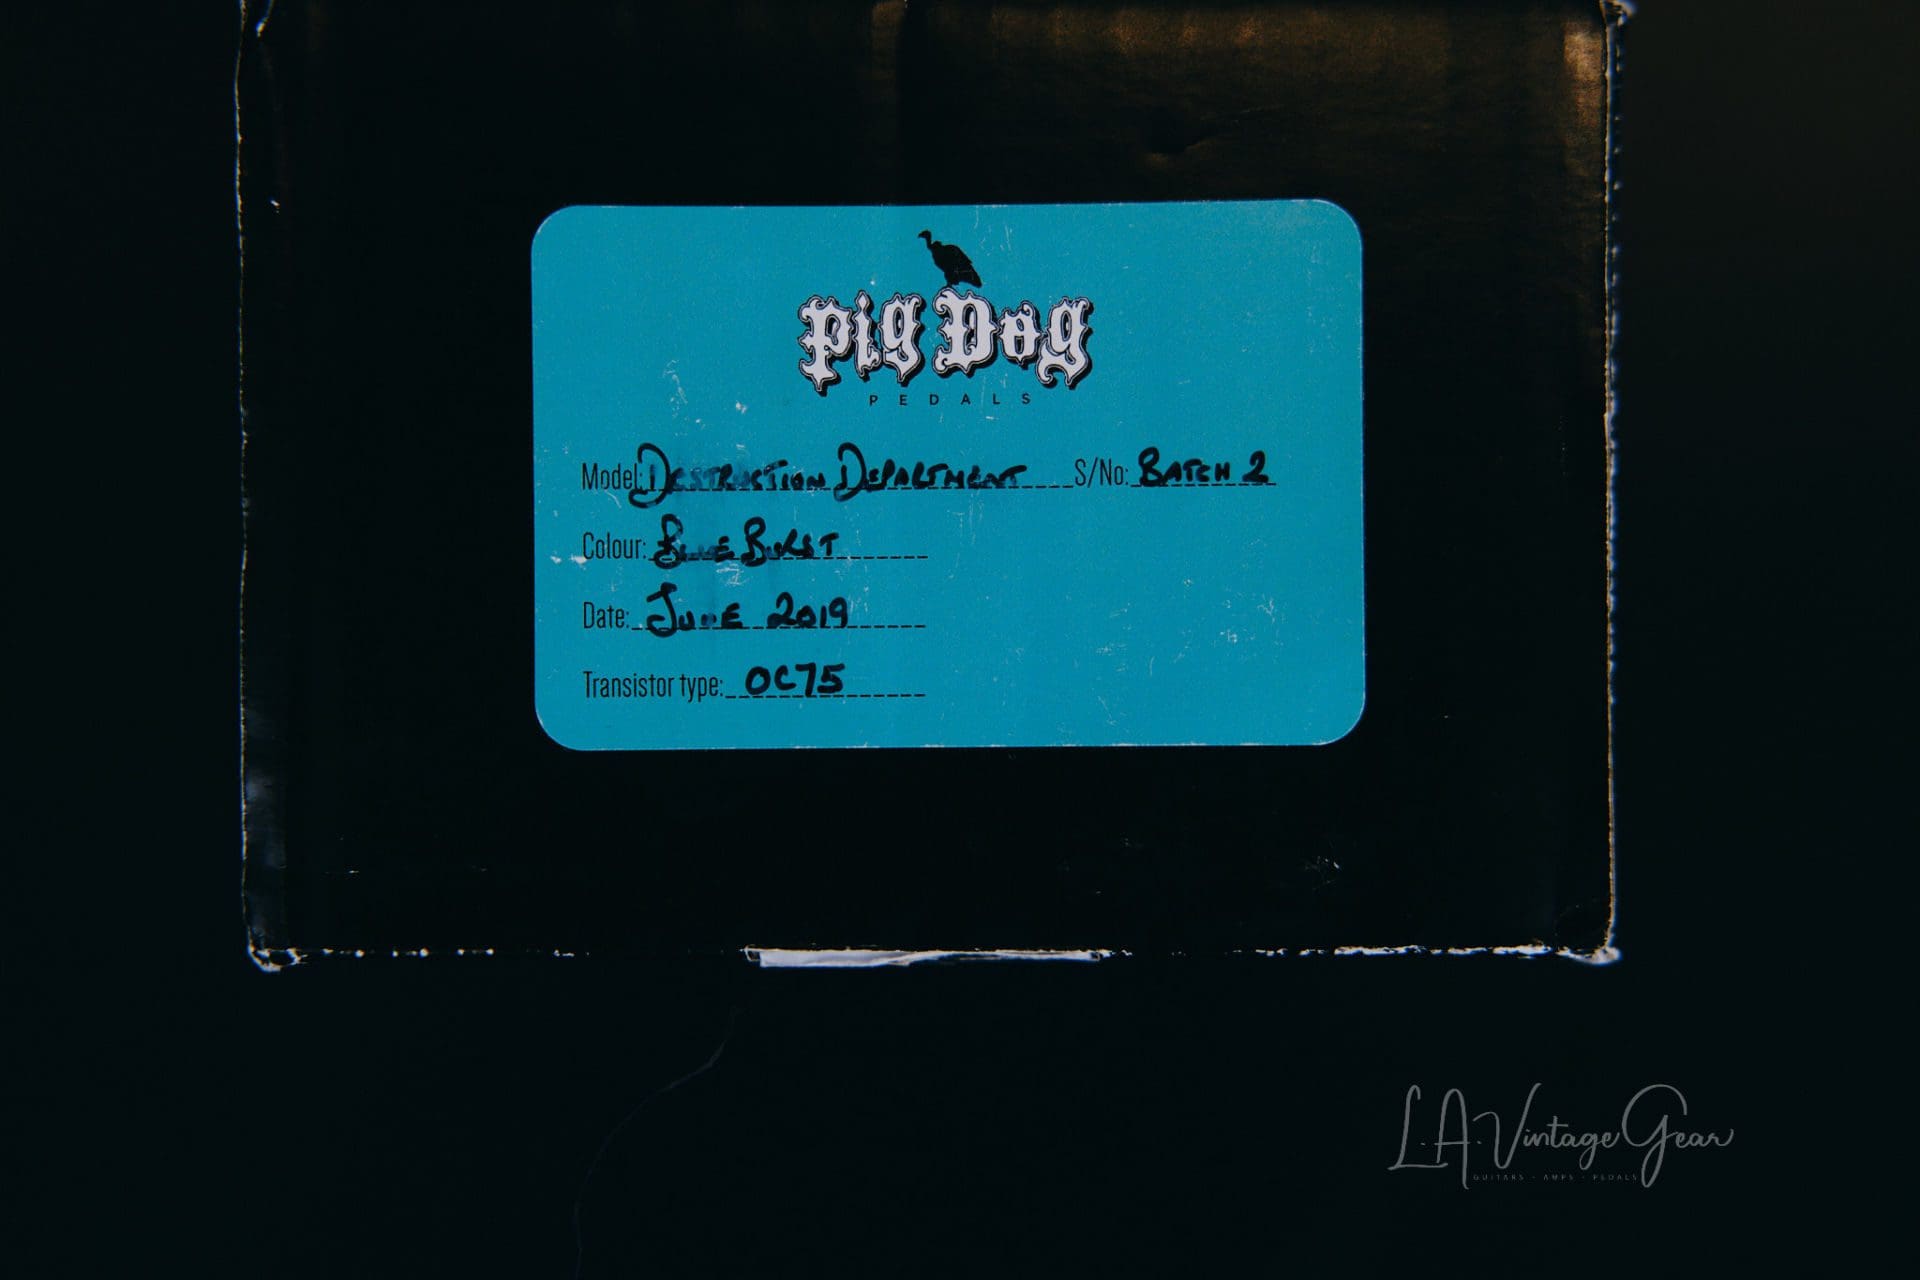 Pig Dog
PEDALS
Model: DESTRUCTION DEPARTMENT S/No: BATCH 2
Colour: BLUE BURST
Date: JUNE 2019
Transistor type: OC75
L.A. Vintage Gear
GUITARS - AMPS - PEDALS